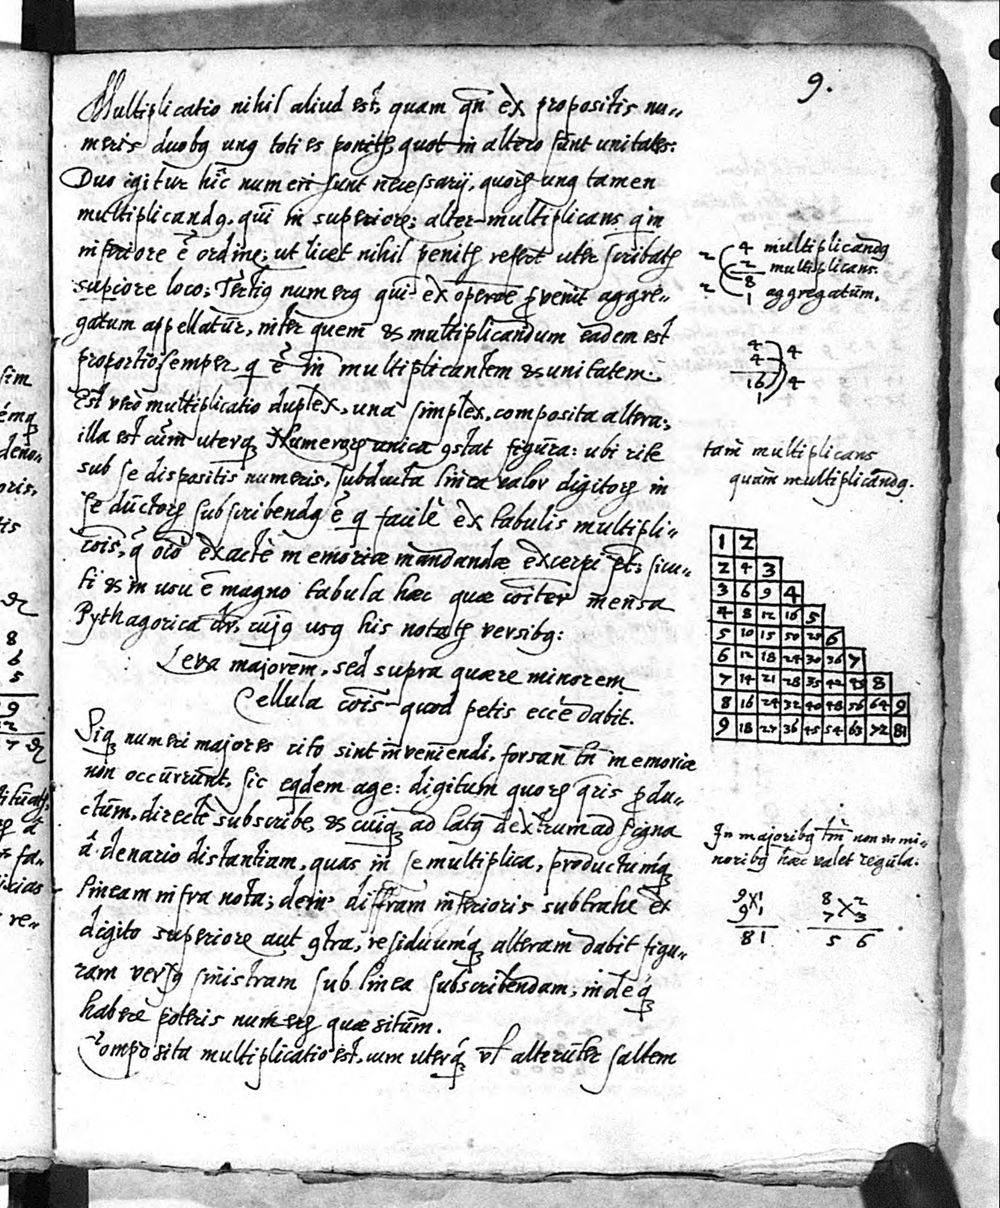 9.
Multiplicatio nihil aliud est, quam qn ex propositis nu„
meris duobq unq toties ponitr, quot in altero sunt unitates:
Duo igitur hic numeri sunt necessarij, quorq unq tamen
multiplicandq, qui in superiore; alter multiplicans q in
inferiore ē ordine; ut licet nihil penitq refert uter scribatr
superiore loco: Tertiq numerq qui ex opere pvenit aggre„
gatum appellatur, inter quem & multiplicandum eadem est
proportio semper, q ē in multiplicantem & unitatem.
Est vero multiplicatio duplex, una simplex, composita altera;
illa est cum uterq Numerorq unica 9stat figura: ubi rite
sub se dispositis numeris, subducta linea valor digitorq in
se ductorq subscribendq ē q facile ex tabulis multipli„
cois, q oio exacte memoriae mandandae excerpi pt; sicu„
ti & in usu ē magno tabula haec quae coiter mensa
Pythagorica dr, cujq usq his notatr versibq:
Leva majorem, sed supra quaere minorem
Cellula cois quod petis ecce dabit.
Siq numeri majores cito sint inveniendi, forsan tn memoriae
non occurrunt, sic eqdem age: digitum quorq qris pdu„
ctum, directe subscribe, & cuiq ad latq dextrum ad signa
a denario distantiam, quas in se multiplica, productumq
lineam infra nota; dein diffram inferioris subtrahe ex
digito superiore aut 9tra, residuumq alteram dabit figu„
ram versq sinistram sub linea subscribendam; indeq
habere poteris numerq quaesitum.
Composita multiplicatio est, cum uterq vl alteruter saltem
4 multiplicandq
2 multiplicans.
8
1 aggregatum.
2
2
4
4
16
1
4
4
tam multiplicans
quam multiplicandq.
1 2
2 4 3
3 6 9 4
4 8 12 16 5
5 10 15 20 25 6
6 12 18 24 30 36 7
7 14 21 28 35 42 49 8
8 16 24 32 40 48 56 64 9
9 18 27 36 45 54 63 72 81
In majoribq tm non in mi„
noribq haec valet regula.
9 X 1
9 1
8 1
8 X 2
7 3
5 6